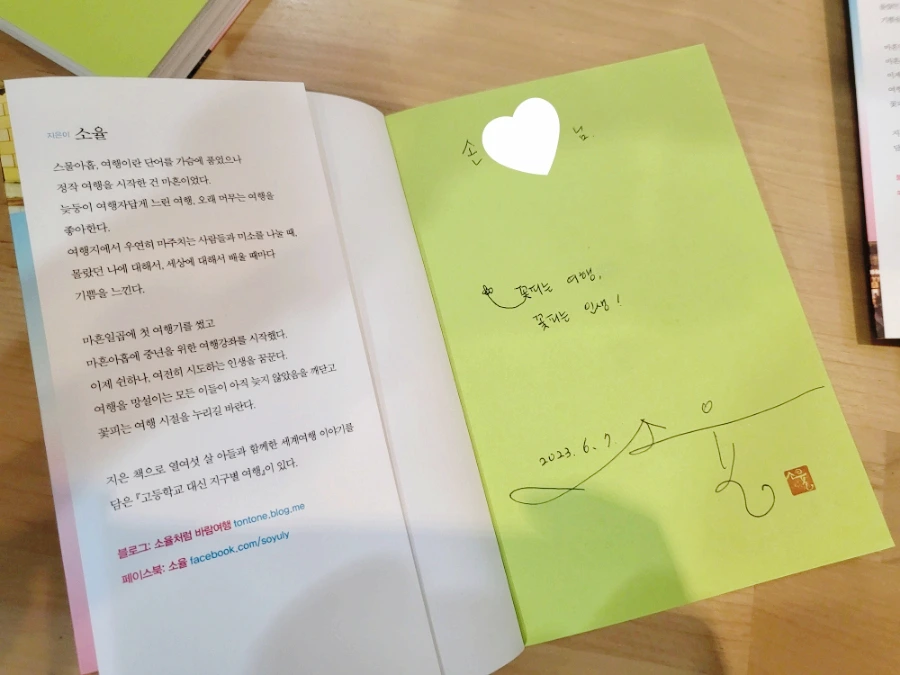 지은이 소율
스물아홉, 여행이란 단어를 가슴에 품었으나
정작 여행을 시작한 건 마흔이었다.
늦둥이 여행자답게 느린 여행, 오래 머무는 여행을
좋아한다.
여행지에서 우연히 마주치는 사람들과 미소를 나눌 때,
몰랐던 나에 대해서, 세상에 대해서 배울 때마다
기쁨을 느낀다.
마흔일곱에 첫 여행기를 썼고
마흔아홉에 중년을 위한 여행강좌를 시작했다.
이제 쉰하나, 여전히 시도하는 인생을 꿈꾼다.
여행을 망설이는 모든 이들이 아직 늦지 않았음을 깨닫고
꽃피는 여행 시절을 누리길 바란다.
지은 책으로 열여섯 살 아들과 함께한 세계여행 이야기를
담은 『고등학교 대신 지구별 여행』이 있다.
블로그: 소율처럼 바람여행 tontone.blog.me
페이스북: 소율 facebook.com/soyuly
손 님.
꽃피는 여행,
꽃피는 인생!
2023. 6. 7.
소율
소율